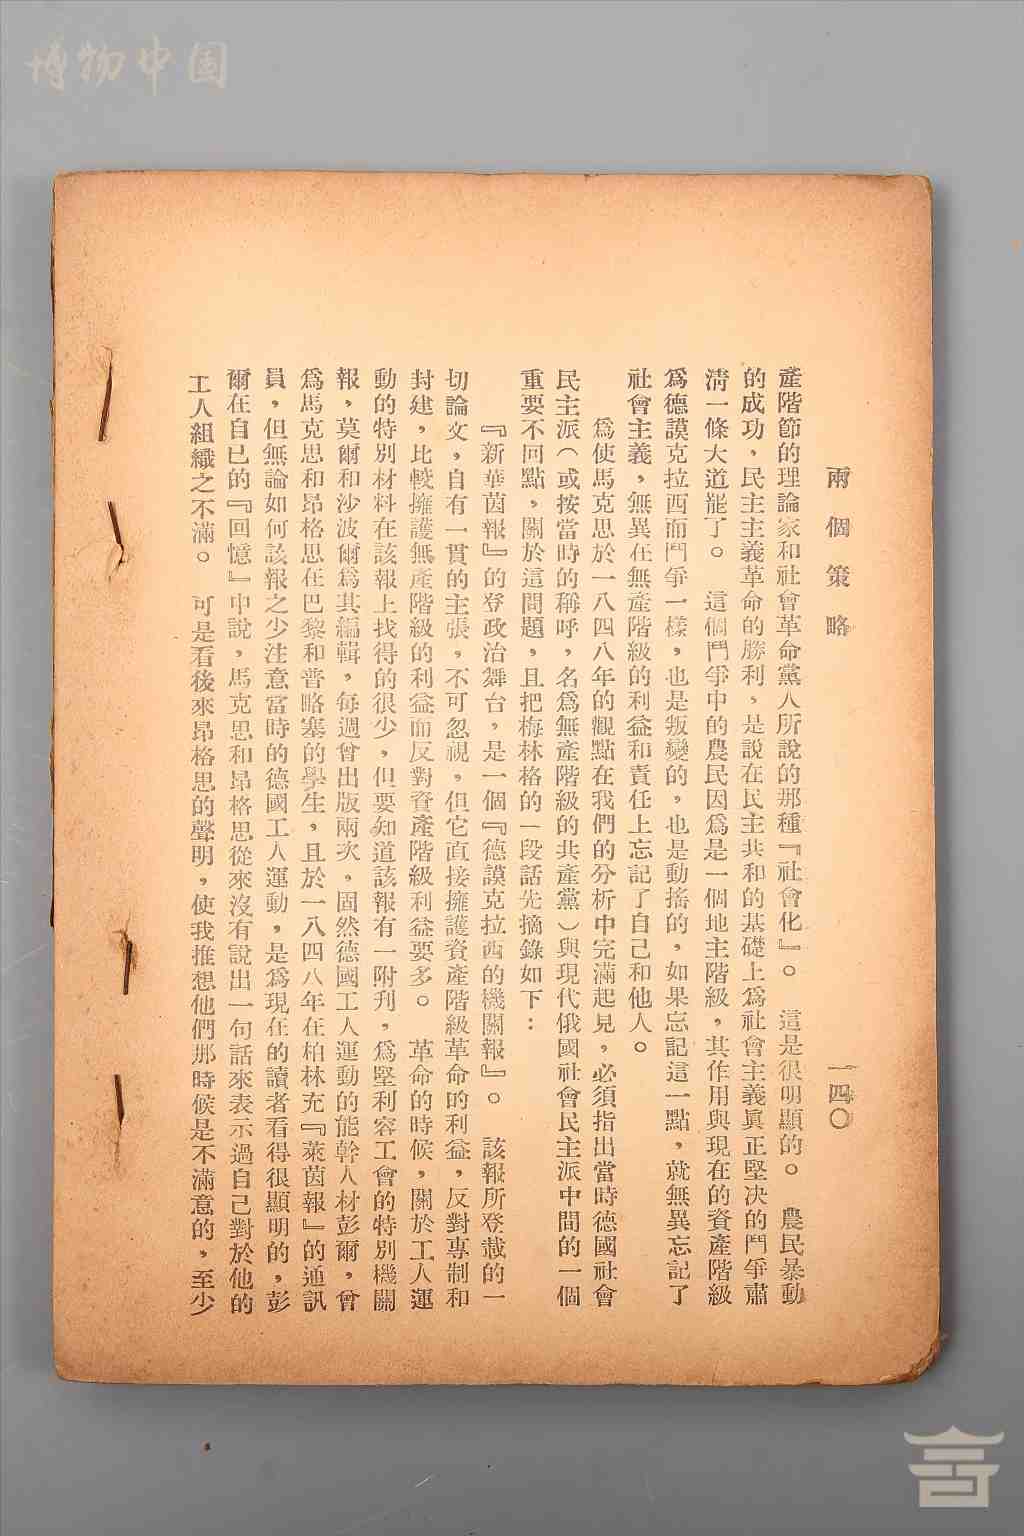 博物中国
兩個策略 一四〇
產階節的理論家和社會革命黨人所說的那種『社會化』。 這是很明顯的。 農民暴動
的成功，民主主義革命的勝利，是說在民主共和的基礎上爲社會主義眞正堅決的鬥爭肅
淸一條大道罷了。 這個鬥爭中的農民因爲是一個地主階級，其作用與現在的資產階級
爲德謨克拉西而鬥爭一樣，也是叛變的，也是動搖的，如果忘記這一點，就無異忘記了
社會主義，無異在無產階級的利益和責任上忘記了自己和他人。
爲使馬克思於一八四八年的觀點在我們的分析中完滿起見，必須指出當時德國社會
民主派（或按當時的稱呼，名爲無產階級的共產黨）與現代俄國社會民主派中間的一個
重要不同點，關於這問題，且把梅林格的一段話先摘錄如下：
『新華茵報』的登政治舞台，是一個『德謨克拉西的機關報』。 該報所登載的一
切論文，自有一貫的主張，不可忽視，但它直接擁護資產階級革命的利益，反對專制和
封建，比較擁護無產階級的利益而反對資產階級利益要多。 革命的時候，關於工人運
動的特別材料在該報上找得的很少，但要知道該報有一附刋，爲堅利容工會的特別機關
報，莫爾和沙波爾爲其編輯，每週曾出版兩次，固然德國工人運動的能幹人材彭爾，曾
爲馬克思和昂格思在巴黎和普略塞的學生，且於一八四八年在柏林充『萊茵報』的通訊
員，但無論如何該報之少注意當時的德國工人運動，是爲現在的讀者看得很顯明的，彭
爾在自已的『回憶』中說，馬克思和昂格思從來沒有說出一句話來表示過自己對於他的
工人組織之不滿。 可是看後來昂格思的聲明，使我推想他們那時候是不滿意的，至少